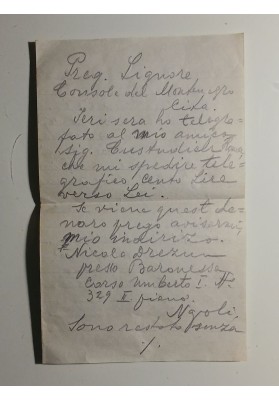 Preg. Signore
Console del Montenegro
Città.
Ieri sera ho telegra-
fato al mio amico
sig.
che mi spedire tele-
grafico cento Lire
verso Lei.
Se viene quest de-
naro prego avisarmi
mio indirizo.
Nicola Drezun
presso Baronessa
Corso Umberto I. N.
329 II piano.
Napoli.
Sono restato senza
./.